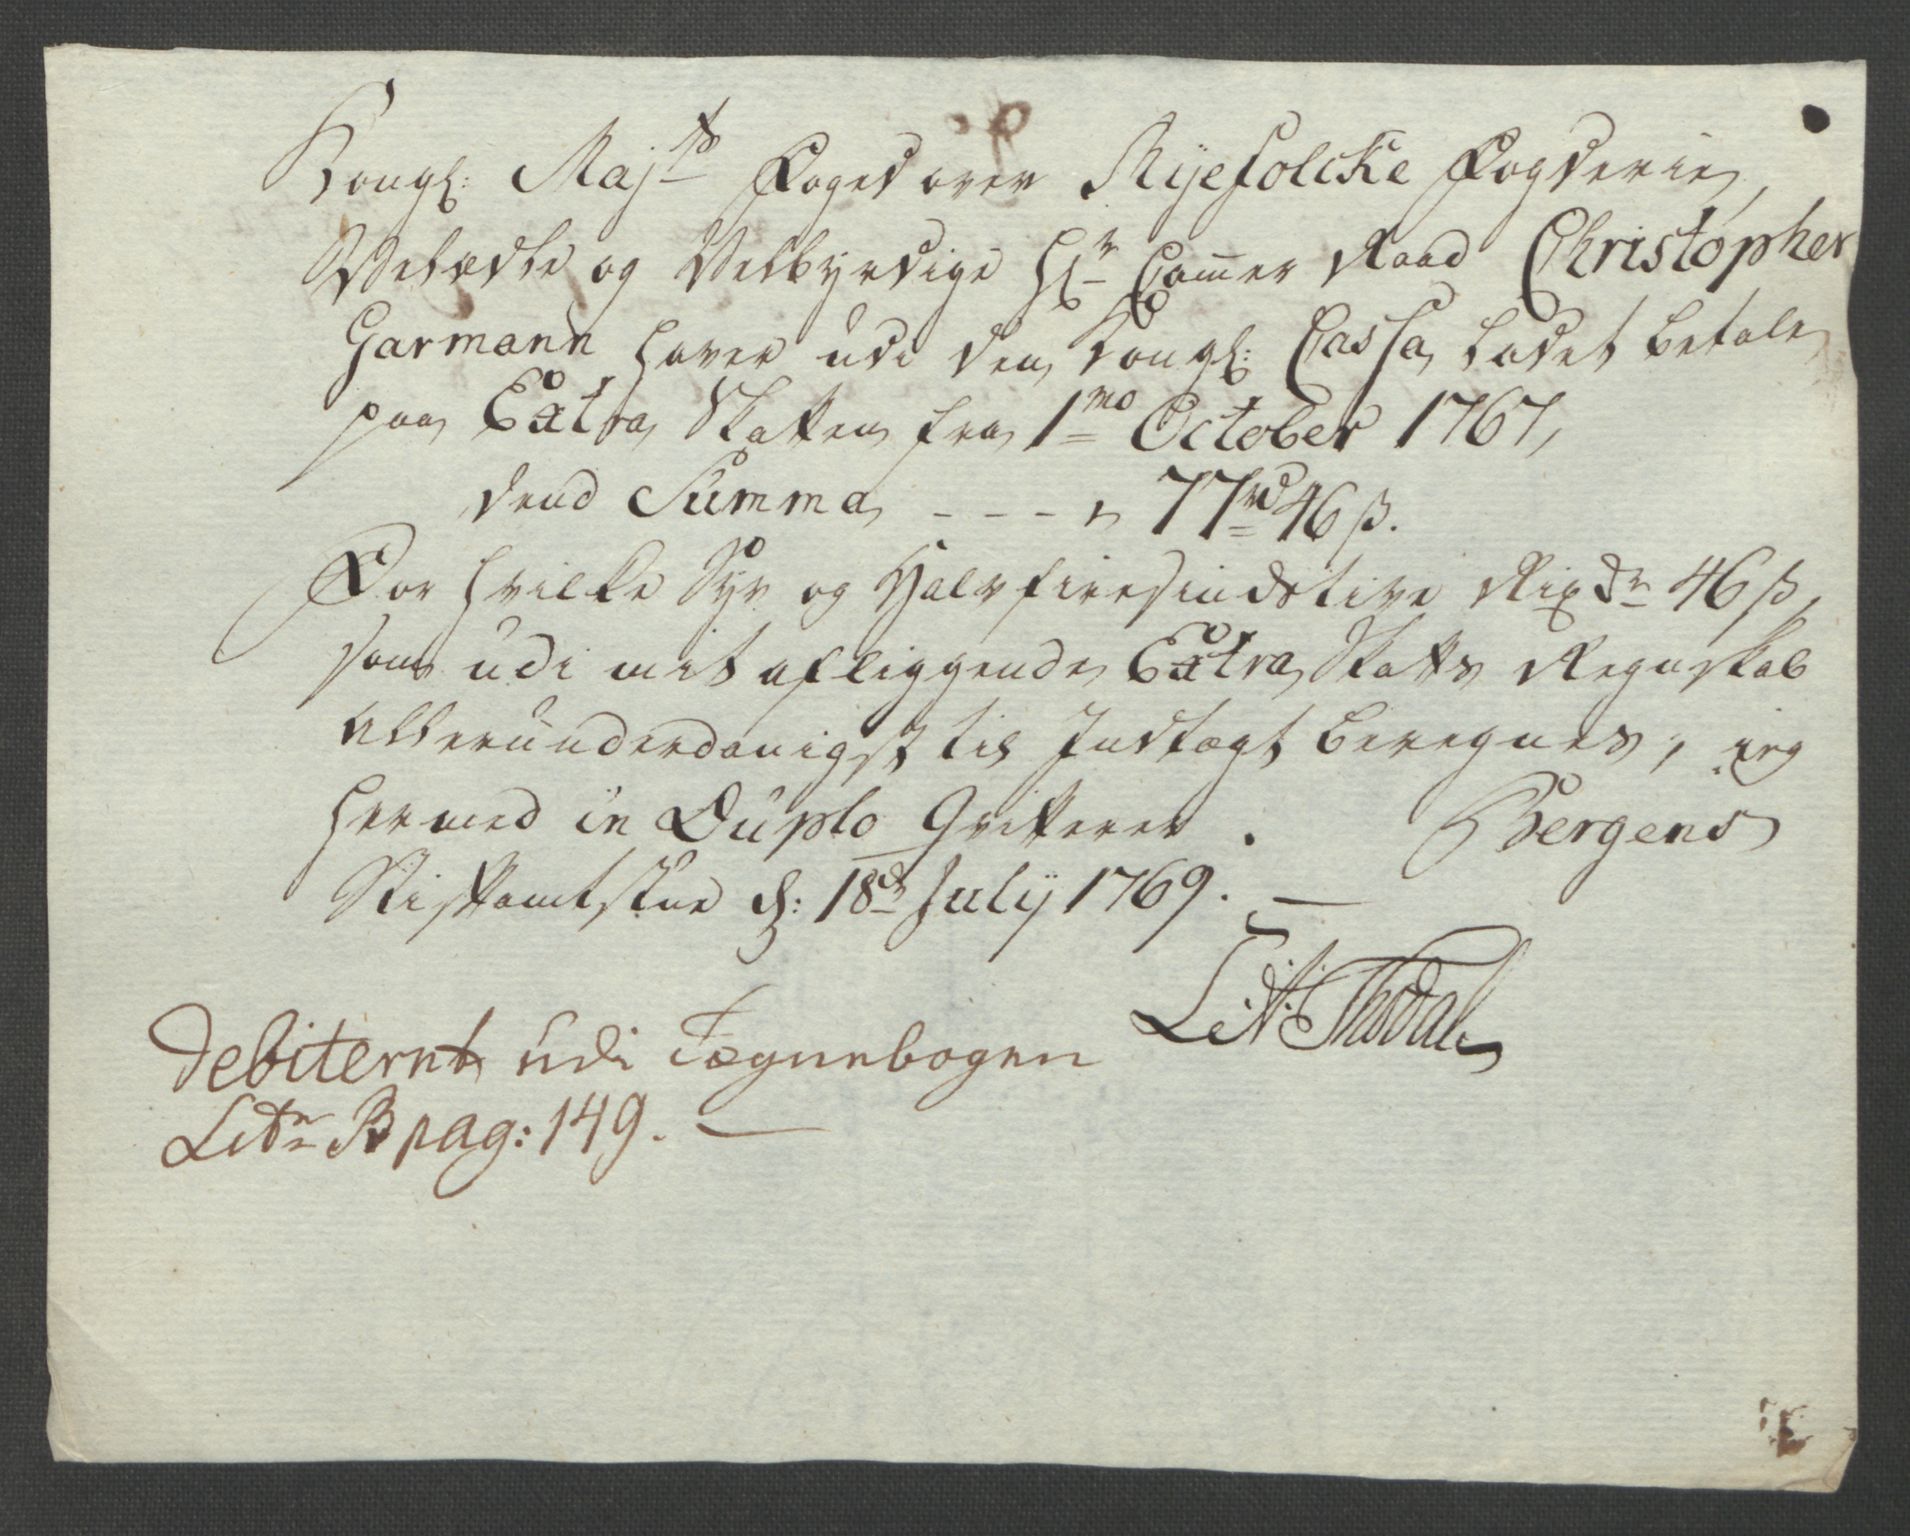 Kongl: Maj.ts Foged over Ryefolcke Fogderie,
Velædle og Velbyrdige Hr. Cammer Raad Christopher
Garmann haver udi den Kongl: Cassa ladet betale
paa Extra Skatten fra 1mo October 1767,
dend Summa - - - - 77 rd 46 ß.
For hvilke Syv og Halvfiresindstive Rixdr 46 ß,
som udi mit aflæggende Extra Skatts Regnskab
allerunderdanigst til Indtægt beregnes, jeg
hermed in Duplo Qvitterer. Bergens
Stiftamtstue d: 18de Julÿ 1769.
L: A: Thodal
debiternt udi Tegnebogen
Litr B pag: 149.